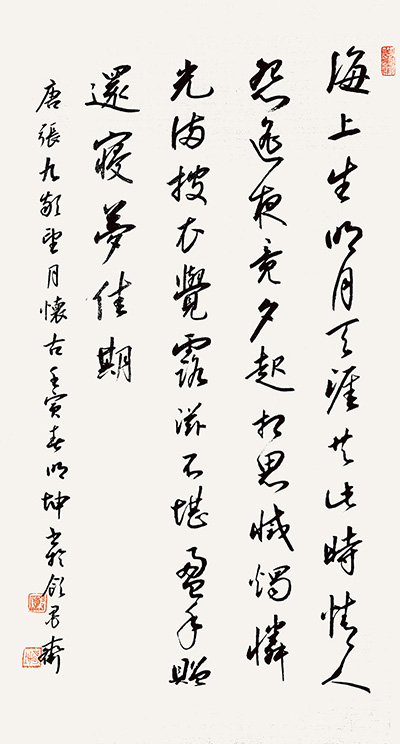 海上生明月天涯共此時情人
怨遙夜竟夕起相思滅燭憐
光滿披衣覺露滋不堪盈手贈
還寢夢佳期
唐張九齡望月懷古壬寅春明坤書於齋